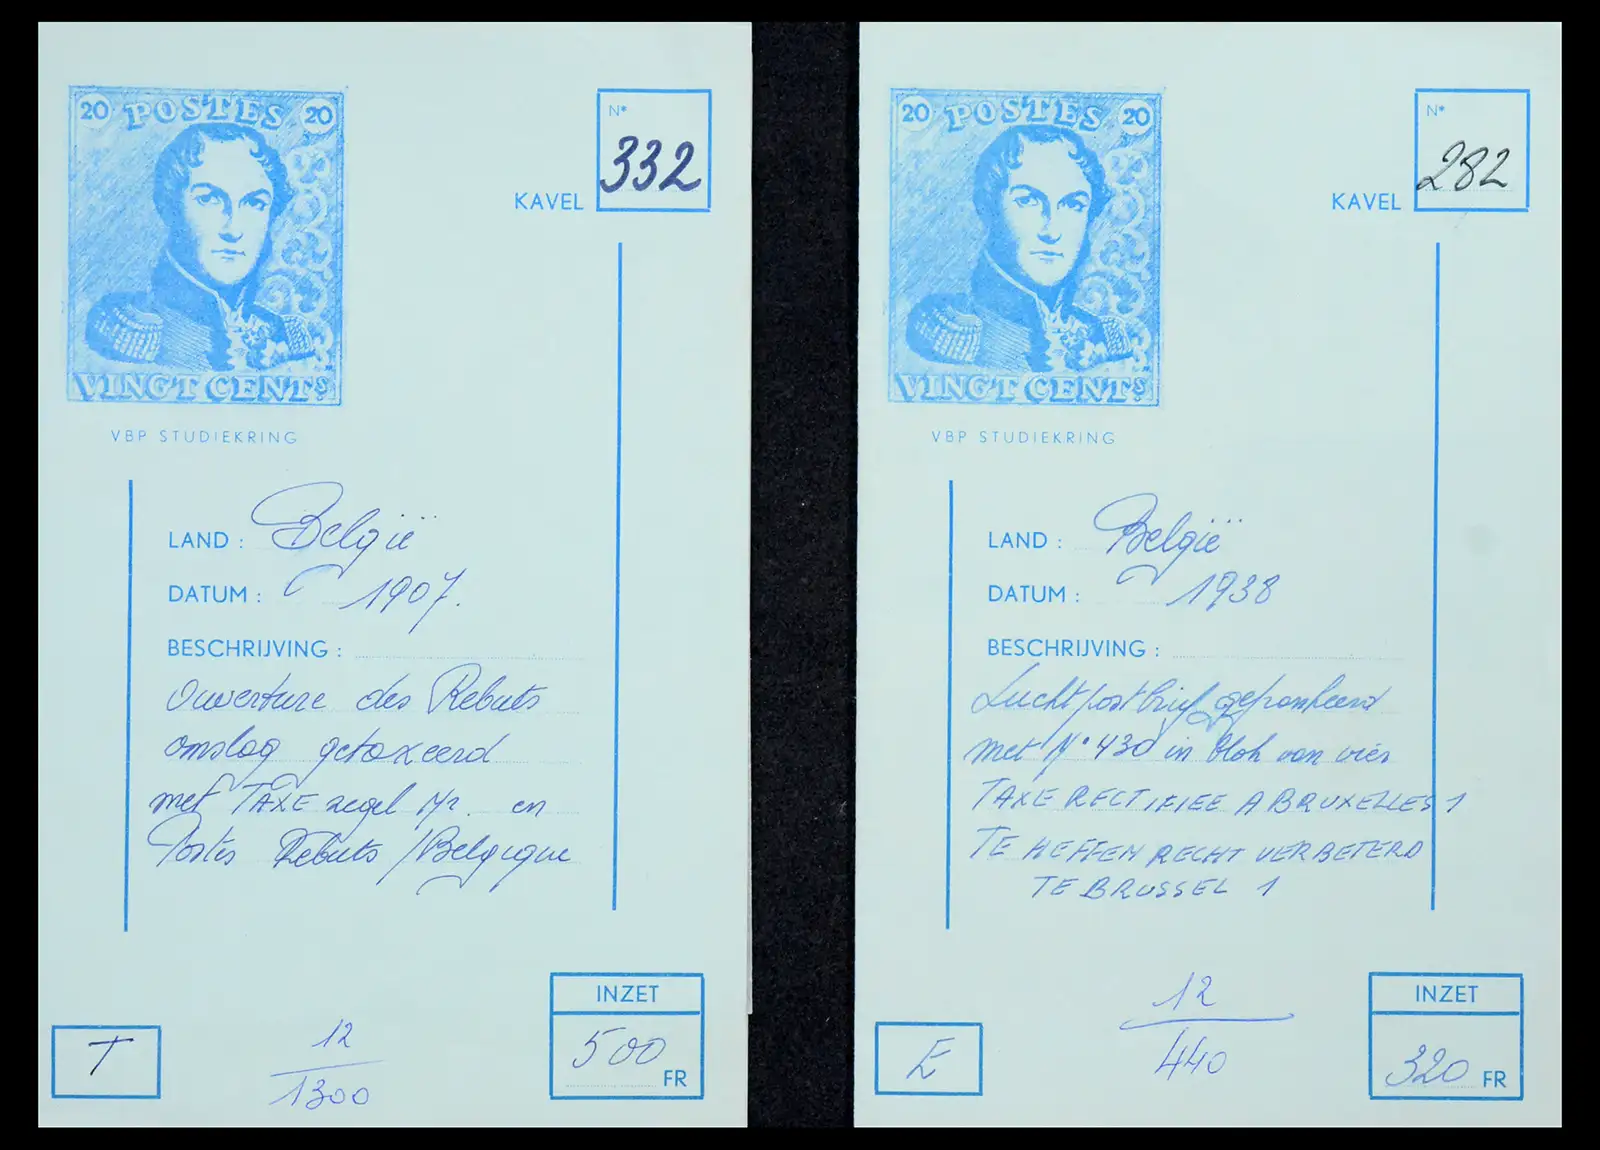 20 POSTES 20
VINGT CENTS
VBP STUDIEKRING
N°
332
KAVEL
LAND : België
DATUM : 1907.
BESCHRIJVING :
Ouverture des Rebuts
omslag getaxeerd
met TAXE zegel Nr. en
Postes Rebuts / Belgique
T
12
1300
INZET
500 FR
20 POSTES 20
VINGT CENTS
VBP STUDIEKRING
N°
282
KAVEL
LAND : België
DATUM : 1938
BESCHRIJVING :
Luchtpostbrief gefrankeerd
met N° 430 in blok van vier
TAXE RECTIFIEE A BRUXELLES 1
TE HEFFEN RECHT VERBETERD
TE BRUSSEL 1
E
12
440
INZET
320 FR